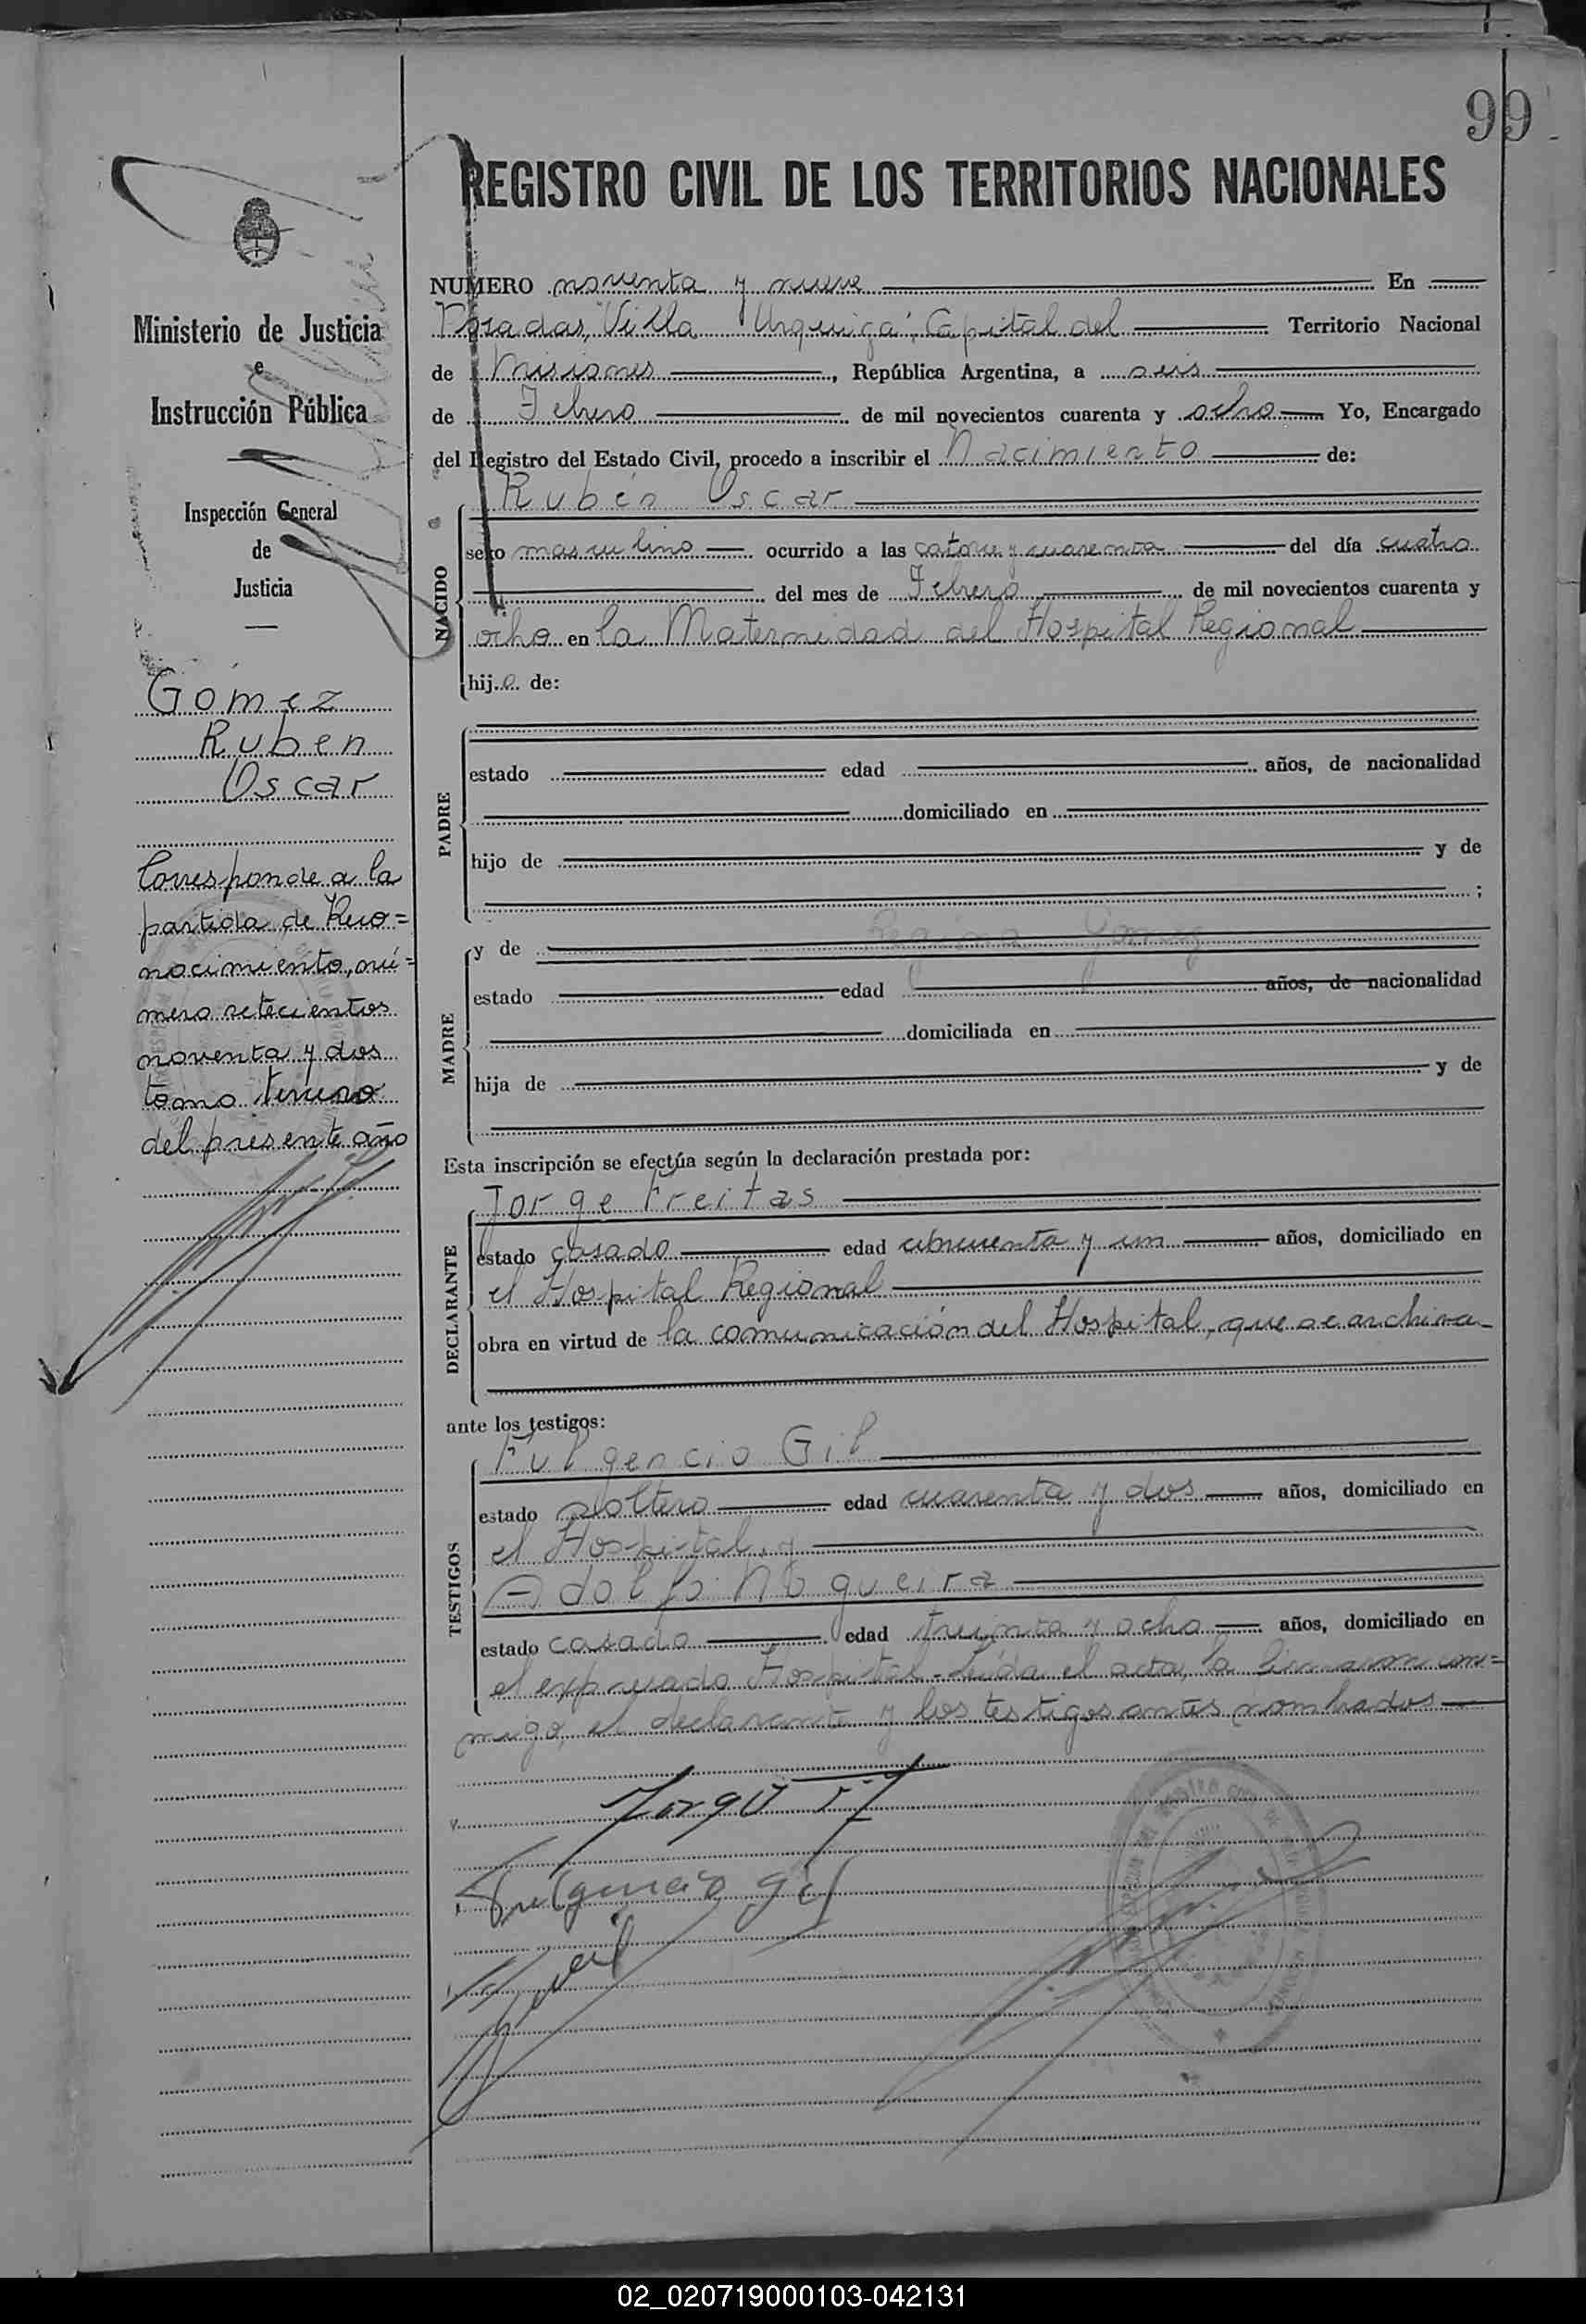 99
REGISTRO CIVIL DE LOS TERRITORIOS NACIONALES
Ministerio de Justicia
e
Instrucción Pública
Inspección General
de
Justicia
Gómez
Ruben
Oscar
Corresponde a la
partida de Reco=
nocimiento, nú=
mero setecientos
noventa y dos
tomo tercero
del presente año
NUMERO noventa y nueve En
Posadas, Villa Urquiza, Capital del Territorio Nacional
de Misiones, República Argentina, a seis
de Febrero de mil novecientos cuarenta y ocho Yo, Encargado
del Registro del Estado Civil, procedo a inscribir el Nacimiento de:
Rubén Oscar
NACIDO
sexo masculino ocurrido a las catorce y cuarenta del día cuatro
del mes de Febrero de mil novecientos cuarenta y
ocho en la Maternidad del Hospital Regional
hijo de:
PADRE
estado edad años, de nacionalidad
domiciliado en
hijo de y de
;
MADRE
y de Regina Gomez
estado edad años, de nacionalidad
domiciliada en
hija de y de
Esta inscripción se efectúa según la declaración prestada por:
DECLARANTE
Jorge Freitas
estado casado edad cincuenta y un años, domiciliado en
el Hospital Regional
obra en virtud de la comunicación del Hospital, que se archiva
ante los testigos:
TESTIGOS
Fulgencio Gil
estado soltero edad cuarenta y dos años, domiciliado en
el Hospital, y
Adolfo Nogueira
estado casado edad treinta y ocho años, domiciliado en
el expresado Hospital - Leída el acta, la firmaron con=
migo, el declarante y los testigos antes nombrados
Fulgencio Gil
02_020719000103-042131